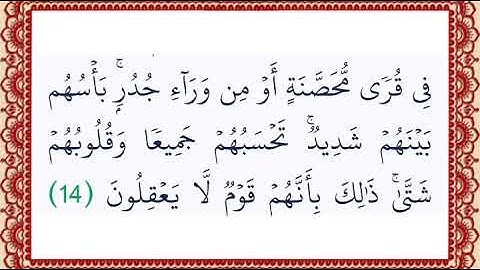 فِي قُرٗى مُّحَصَّنَةٍ أَوۡ مِن وَرَآءِ جُدُرِۭۚ بَأۡسُهُم
بَيۡنَهُمۡ شَدِيدٞۚ تَحۡسَبُهُمۡ جَمِيعٗا وَقُلُوبُهُمۡ
شَتَّىٰۚ ذَٰلِكَ بِأَنَّهُمۡ قَوۡمٞ لَّا يَعۡقِلُونَ (14)